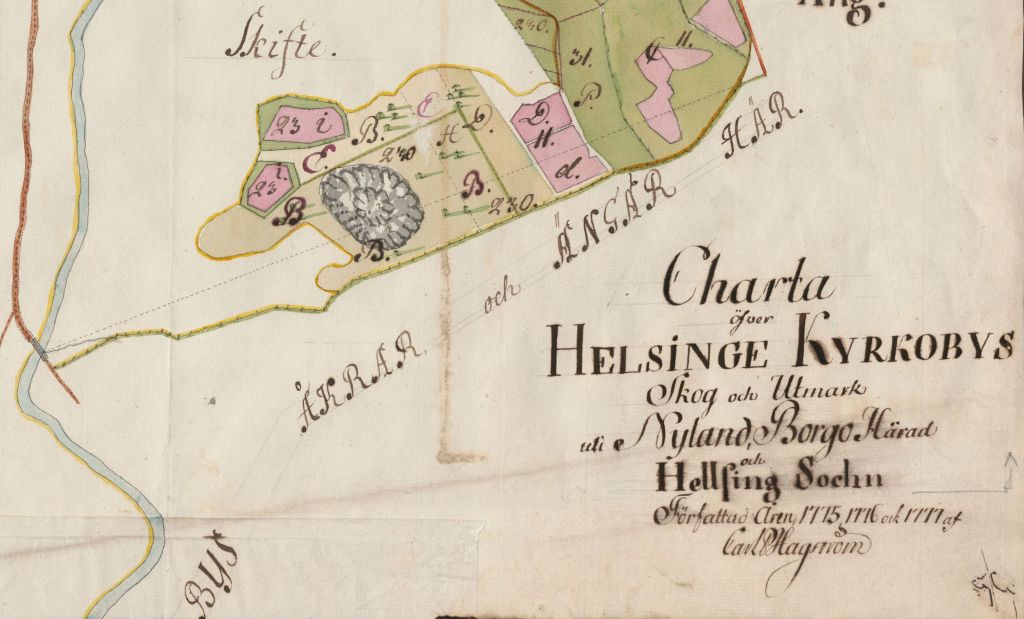 Äng.
Skifte.
230.
31.
P.
C 11.
23 i
B.
E
H D.
D.
11.
d.
E.
230
23 i.
B
B.
230.
B.
HÄR.
ÅKRAR och ÄNGAR
Charta
öfver
HELSINGE KYRKOBYS
Skog och Utmark
uti Nyland, Borgo Härad
och
Hellsing Sochn
Författad Åren, 1775, 1776 och 1777 af
Carl P Hagström
BYS